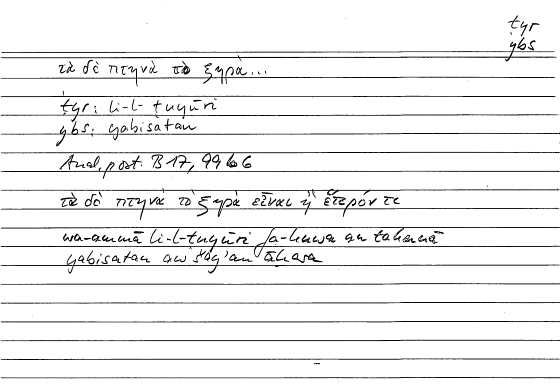 ṭyr
ybs
τὰ δὲ πτηνὰ τὸ ξηρὰ...
ṭyr: li-l-ṭuyūri
ybs: yabisatan
Anal. post. B 17, 99 b 6
τὰ δὲ πτηνὰ τὸ ξηρὰ εἶναι ἢ ἕτερόν τι
wa-ammā li-l-ṭuyūri fa-huwa an
yabisatan aw šayʾan āḫara